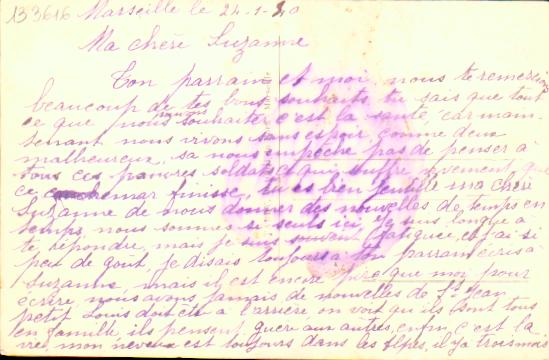 133616 Marseille le 24-1-40
Ma chère Suzanne
Ton parrain et moi, nous te remercions
beaucoup de tes bons souhaits, tu sais que tout
ce que nous pouvons souhaiter c'est la santé, car main-
tenant nous vivons sans espoir comme deux
malheureux, sa nous empêche pas de penser à
tous ces pauvres soldats qui souffre, vivement que
ce cauchemar finisse, tu es bien gentille ma chère
Suzanne de nous donner des nouvelles de temps en
temps, nous sommes si seuls ici, je suis longue a
te répondre, mais je suis souvent fatiguée, et j'ai si
peu de goût, je disais toujours a ton parrain écris à
Suzanne, mais il est encore pire que moi pour
écrire, nous avons jamais de nouvelles de St Jean
petit Louis doit être à l'arrière on voit qu'ils sont tous
en famille ils pensent guère aux autres, enfin c'est la
vie, mon neveu est toujours dans les Alpes, il y a trois mois